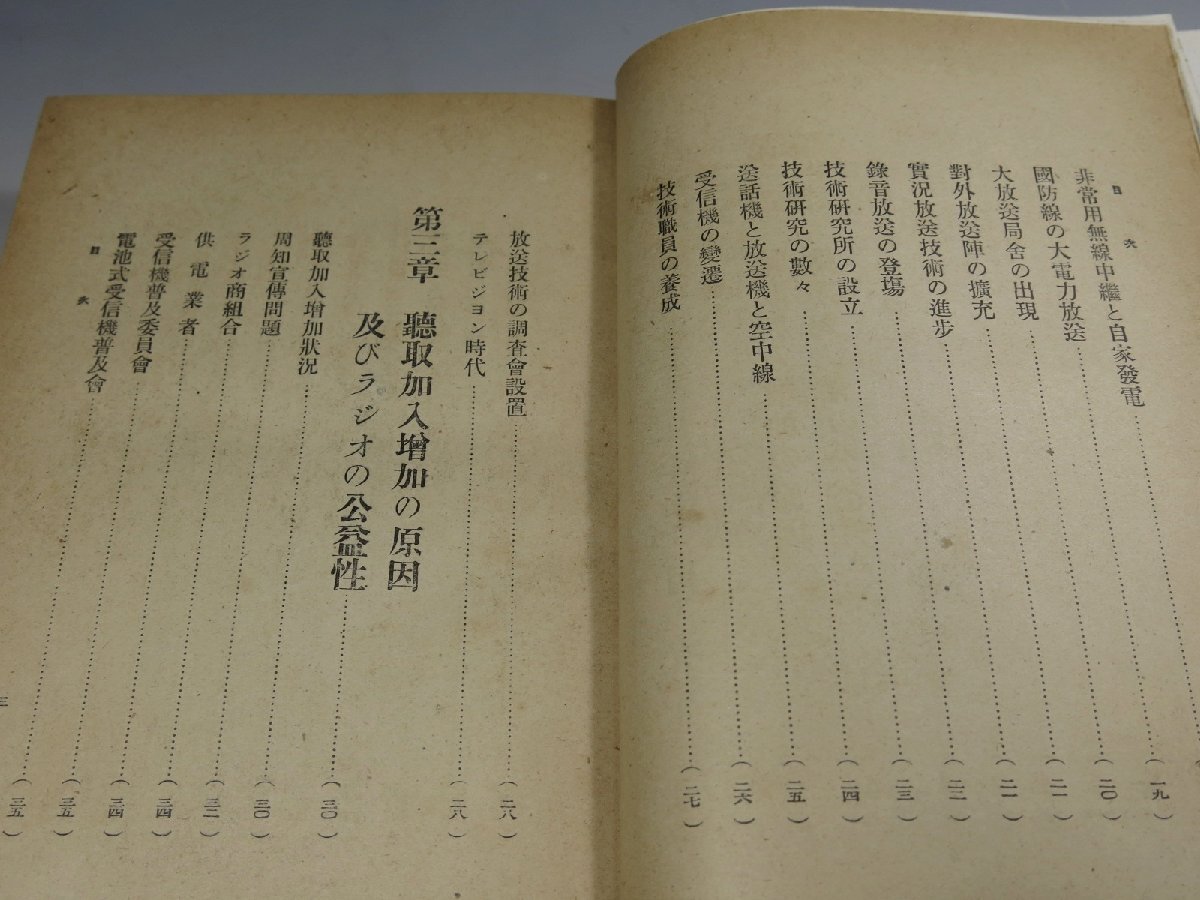 目次
非常用無線中繼と自家發電
國防線の大電力放送（一九）
大放送局舍の出現（二〇）
對外放送陣の擴充（二一）
實況放送技術の進步（二一）
錄音放送の登場（二二）
技術研究所の設立（二三）
技術研究の數々（二四）
送話機と放送機と空中線（二五）
受信機の變遷（二六）
技術職員の養成（二七）
放送技術の調査會設置（二八）
テレビジョン時代（二八）
第三章 聽取加入增加の原因
及びラジオの公益性（三〇）
聽取加入增加狀況（三〇）
周知宣傳問題（三二）
ラジオ商組合（三四）
供電業者（三四）
受信機普及委員會（三五）
電池式受信機普及會（三五）
目次
三